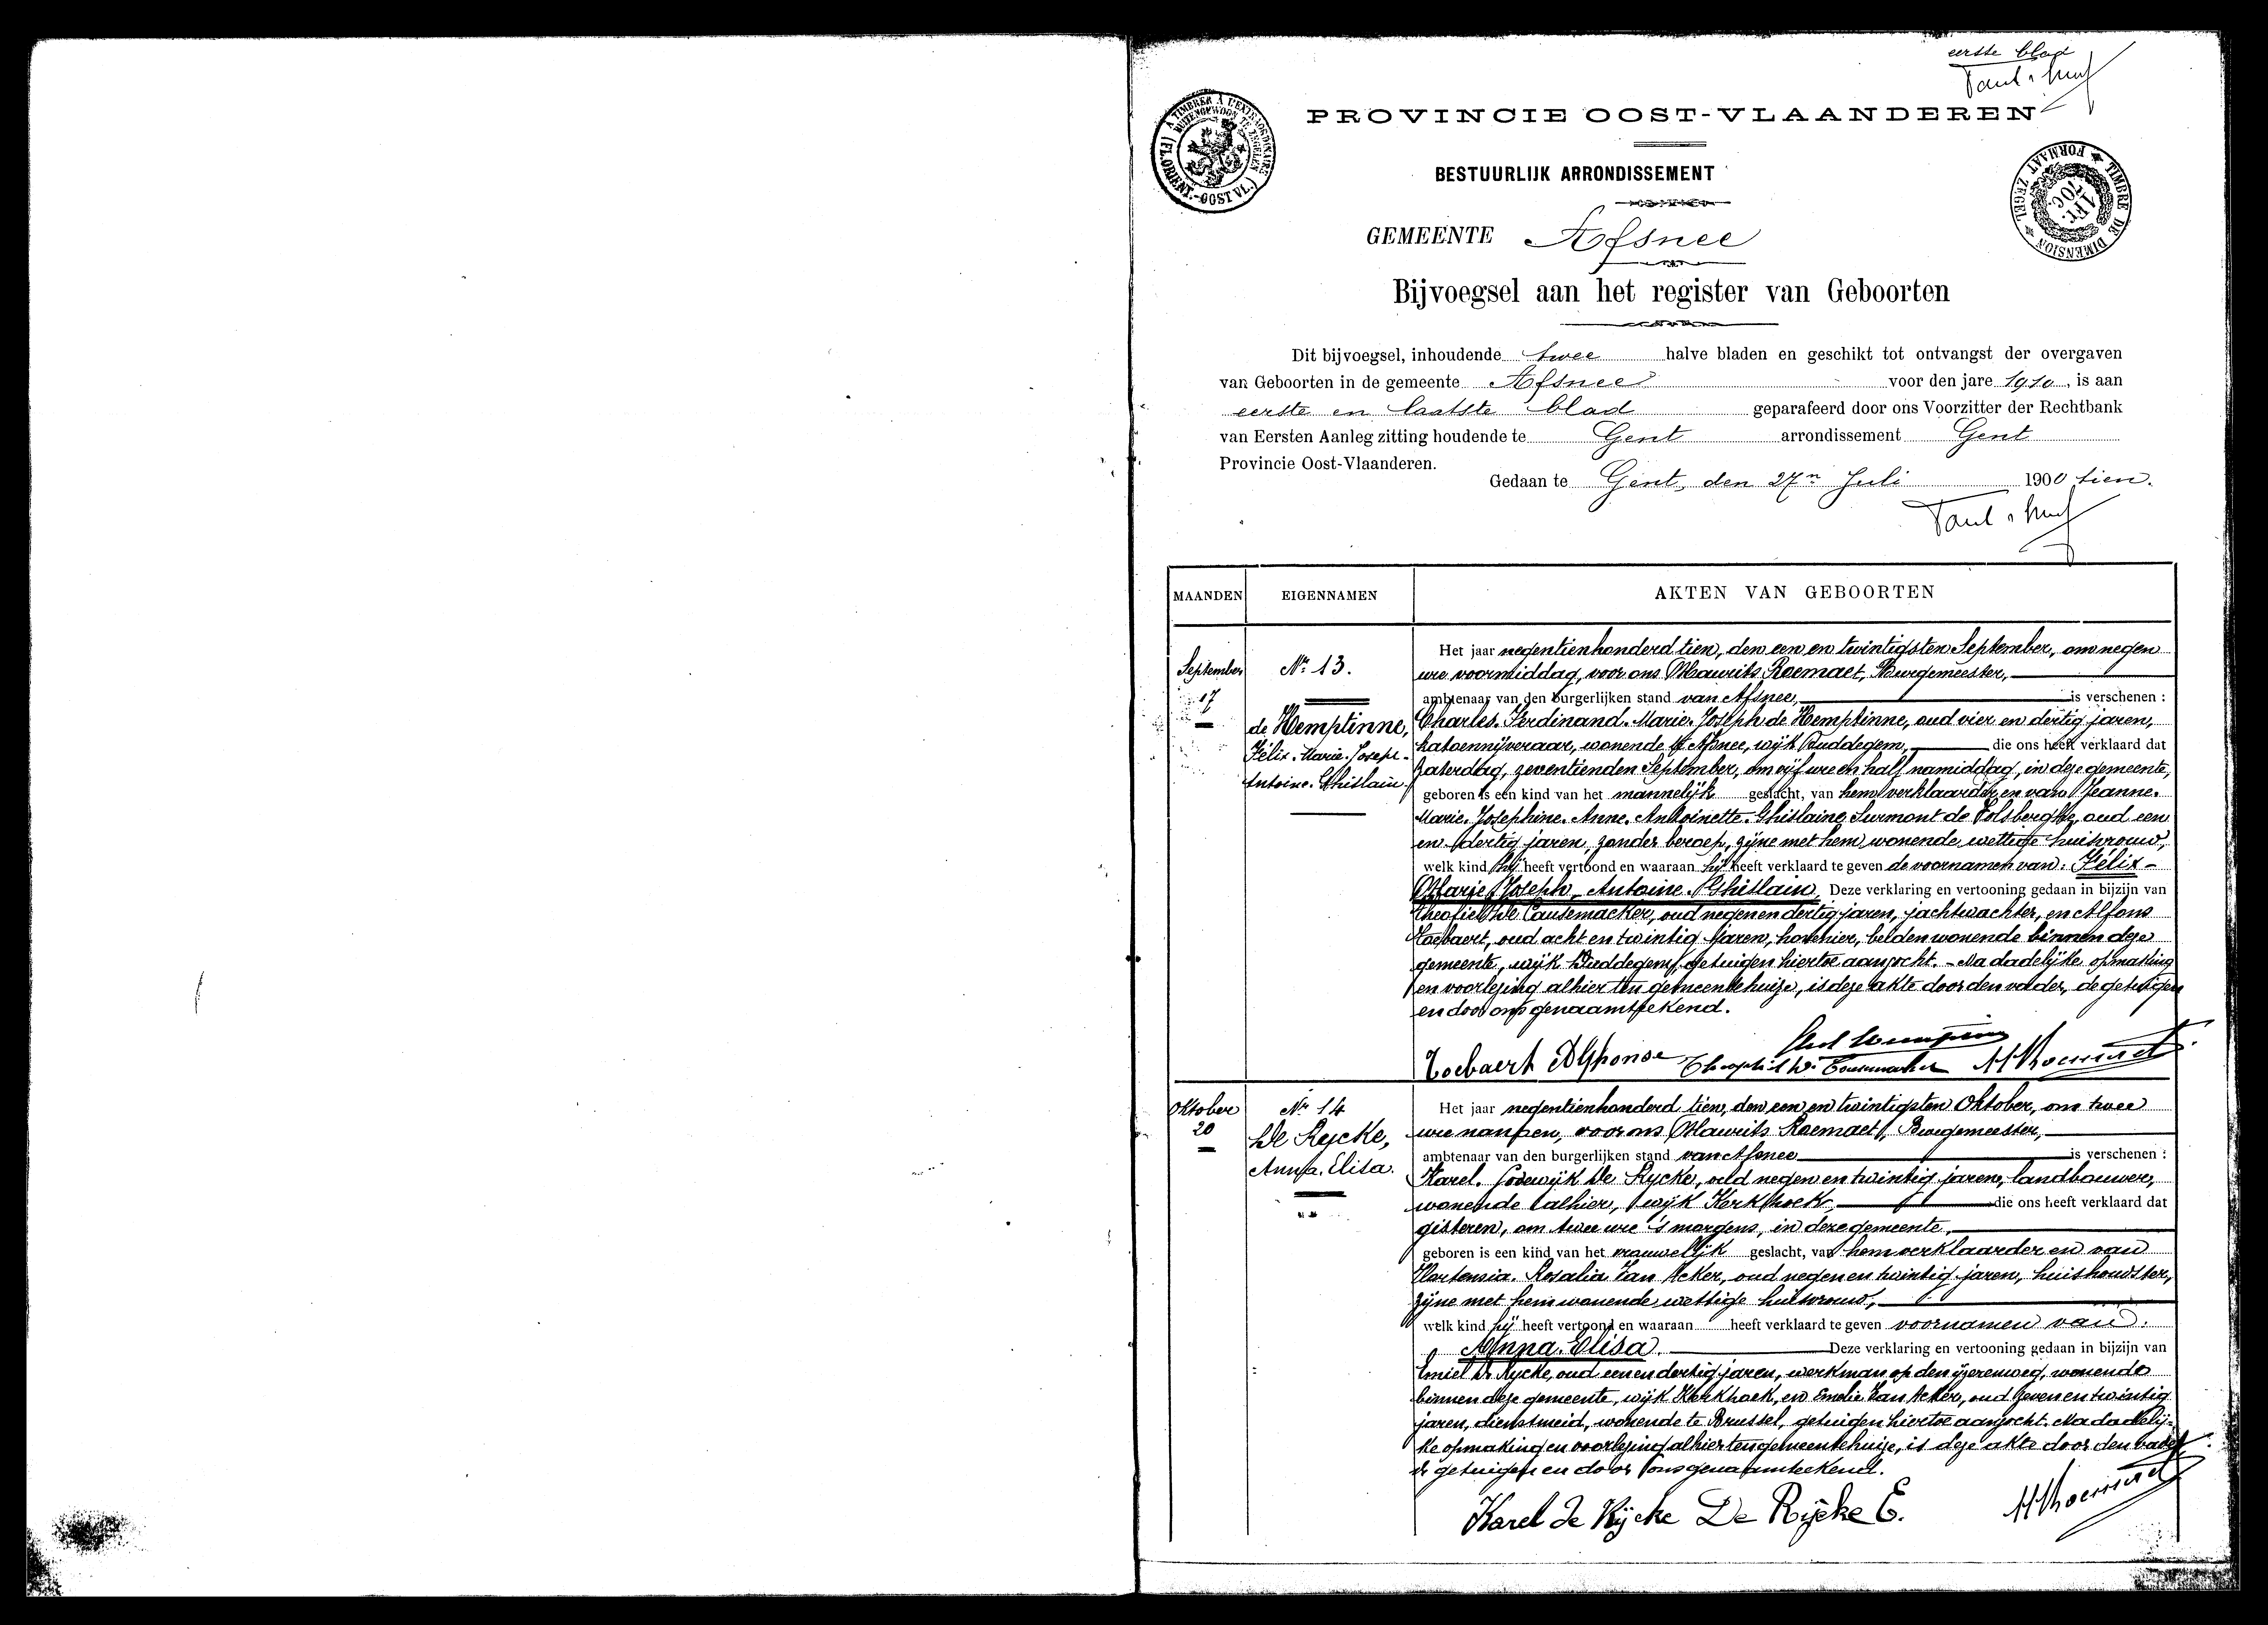 eerste blad
A TIMBRER À L'EXTRAORDINAIRE
BUITENGEWOON TE ZEGELEN
(FL. ORIENT.-OOST VL.)
PROVINCIE OOST-VLAANDEREN
BESTUURLIJK ARRONDISSEMENT
TIMBRE DE DIMENSION
FORMAAT ZEGEL
GEMEENTE Afsnee
Bijvoegsel aan het register van Geboorten
Dit bijvoegsel, inhoudende twee halve bladen en geschikt tot ontvangst der overgaven
van Geboorten in de gemeente Afsnee voor den jare 1910, is aan
eerste en laatste blad geparafeerd door ons Voorzitter der Rechtbank
van Eersten Aanleg zitting houdende te Gent arrondissement Gent
Provincie Oost-Vlaanderen.
Gedaan te Gent, den 27n Juli 1900 tien.
MAANDEN EIGENNAMEN AKTEN VAN GEBOORTEN
September
17
Nr 13.
de Hemptinne,
Félix-Marie-Joseph-
Antoine-Ghislain.
Het jaar negentienhonderd tien, den een en twintigsten September, om negen
ure voormiddag, voor ons Maurits Roemaet, Burgemeester,
ambtenaar van den burgerlijken stand van Afsnee, is verschenen :
Charles-Ferdinand-Marie-Joseph de Hemptinne, oud vier en dertig jaren,
katoennijveraar, wonende te Afsnee, wijk Duddegem, die ons heeft verklaard dat
zaterdag, zeventienden September, om vijf ure en half namiddag, in deze gemeente,
geboren is een kind van het mannelijk geslacht, van hem verklaarder en van Jeanne-
Marie-Josephine-Anne-Antoinette-Ghislaine Surmont de Volsberghe, oud een
en dertig jaren, zonder beroep, zijne met hem wonende wettige huisvrouw,
welk kind hij heeft vertoond en waaraan hij heeft verklaard te geven de voornamen van: Félix-
Marie-Joseph-Antoine-Ghislain. Deze verklaring en vertooning gedaan in bijzijn van
Theofiel De Causemacker, oud negen en dertig jaren, jachtwachter, en Alfons
Toebaert, oud acht en twintig jaren, hovenier, beiden wonende binnen deze
gemeente, wijk Duddegem, getuigen hiertoe aanzocht. - Na dadelijke opmaking
en voorlezing alhier ten gemeentehuize, is deze akte door den vader, de getuigen
en door ons genaamteekend.
Toebaert Alphonse
Oktober
20
Nr 14
De Rycke,
Anna-Elisa.
Het jaar negentienhonderd tien, den een en twintigsten Oktober, om twee
ure nanoen, voor ons Maurits Roemaet, Burgemeester,
ambtenaar van den burgerlijken stand van Afsnee is verschenen :
Karel-Lodewijk De Rycke, oud negen en twintig jaren, landbouwer,
wonende alhier, wijk Kerkhoek, die ons heeft verklaard dat
gisteren, om twee ure 's morgens, in deze gemeente,
geboren is een kind van het vrouwelijk geslacht, van hem verklaarder en van
Hortensia-Rosalia Van Acker, oud negen en twintig jaren, huishoudster,
zijne met hem wonende wettige huisvrouw,
welk kind hij heeft vertoond en waaraan heeft verklaard te geven voornamen van:
Anna-Elisa. Deze verklaring en vertooning gedaan in bijzijn van
Emiel De Rycke, oud een en dertig jaren, werkman op den ijzerenweg, wonende
binnen deze gemeente, wijk Kerkhoek, en Emelie Van Acker, oud zeven en twintig
jaren, dienstmeid, wonende te Brussel, getuigen hiertoe aanzocht. Na dadelij-
ke opmaking en voorlezing alhier ten gemeentehuize, is deze akte door den vader
de getuigen en door ons genaamteekend.
Karel De Rijcke De Rijcke E.